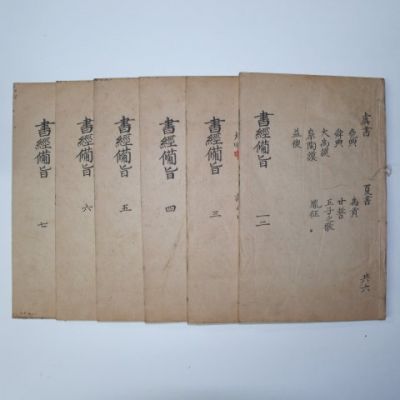 虞書
堯典
舜典
大禹謨
皐陶謨
益稷
夏書
禹貢
甘誓
五子之歌
胤征
共六
書經備旨 一二
書經備旨 三
書經備旨 四
書經備旨 五
書經備旨 六
書經備旨 七